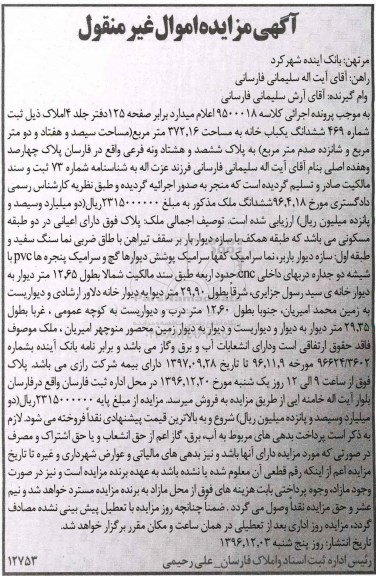 آگهی مزایده اموال غیر منقول
مرتهن: بانک آینده شهرکرد
راهن: آقای آیت اله سلیمانی فارسانی
وام گیرنده: آقای آرش سلیمانی فارسانی
به موجب پرونده اجرائی کلاسه ۹۵۰۰۰۱۸ اعلام میدارد برابر صفحه ۱۲۵دفتر جلد ۴املاک ذیل ثبت
شماره ۴۶۹ ششدانگ یکباب خانه به مساحت ۳۷۲,۱۶ متر مربع(مساحت سیصد و هفتاد و دو متر
مربع و شانزده صدم متر مربع) به پلاک ششصد و هشتاد ونه فرعی واقع در فارسان پلاک چهارصد
وهفده اصلی بنام آقای آیت اله سلیمانی فارسانی فرزند عزت اله به شناسنامه شماره ۷۳ ثبت و سند
مالکیت صادر و تسلیم گردیده است که منجر به صدور اجرائیه گردیده و طبق نظریه کارشناس رسمی
دادگستری مورخ ۹۶,۴,۱۸ششدانگ ملک مذکور به مبلغ ۲۳۱۵۰۰۰۰۰۰ریال(دو میلیارد وسیصد و
پانزده میلیون ریال) ارزیابی شده است. توصیف اجمالی ملک: پلاک فوق دارای اعیانی در دو طبقه
مسکونی می باشد که طبقه همکف با سازه دیوار بار بر سقف تیرآهن با طاق ضربی نما سنگ سفید و
طبقه اول: سازه دیوار باربر، نما سرامیک کفها سرامیک پوشش دیوارها گچ و سرامیک پنجره ها pvc با
شیشه دو جداره دربهای داخلی cnc،حدود اربعه طبق سند مالکیت شمالا بطول ۱۲,۶۵ متر دیوار به
دیوار خانه ی سید رسول جزایری، شرقاً بطول ۲۹,۹۰ متر دیوا به دیوار خانه دلاور ارشادی و دیواریست
به زمین محمد امیریان، جنوبا بطول ۱۲,۶۰ متر درب و دیواریست به کوچه عمومی ، غربا بطول
۲۹,۳۵ متر دیوار به دیوار و دیواریست و دیوار به دیوار زمین محصور منوچهر امیریان ، ملک موصوف
فاقد حقوق ارتفاقی است ودارای انشعابات آب و برق وگاز می باشد و برابر نامه بانک آینده بشماره
۹۶۶۲۴/۳۶۰۲ مورخه ۹۶,۱۱,۹ تا تاریخ ۱۳۹۷,۰۹,۲۸ دارای بیمه شرکت رازی می باشد. پلاک
فوق از ساعت ۹ الی ۱۲ روز یک شنبه مورخ ۱۳۹۶,۱۲,۲۰ در محل اداره ثبت فارسان واقع درفارسان
بلوار آیت اله خامنه ایی از طریق مزایده به فروش میرسد. مزایده از مبلغ پایه ۲۳۱۵۰۰۰۰۰۰ریال(دو
میلیارد وسیصد و پانزده میلیون ریال) شروع و به بالاترین قیمت پیشنهادی نقداً فروخته می شود. لازم
به ذکر است پرداخت بدهی های مربوط به آب، برق، گاز اعم از حق انشعاب و یا حق اشتراک و مصرف
در صورتی که مورد مزایده دارای آنها باشد و نیز بدهی های مالیاتی و عوارض شهرداری و غیره تا تاریخ
مزایده اعم از اینکه رقم قطعی آن معلوم شده یا نشده باشد به عهده برنده مزایده است و نیز در صورت
وجود مازاد، وجوه پرداختی بابت هزینه های فوق از محل مازاد به برنده مزایده مسترد خواهد شد و نیم
عشر و حق مزایده نقدا وصول می گردد . ضمناً چنانچه روز مزایده با تعطیل پیش بینی نشده مصادف
گردد، مزایده روز اداری بعد از تعطیلی در همان ساعت و مکان مقرر برگزار خواهد شد.
تاریخ انتشار: روز پنج شنبه ۱۳۹۶,۱۲,۰۳
رئیس اداره ثبت اسناد واملاک فارسان_ علی رحیمی ۱۲۷۵۳